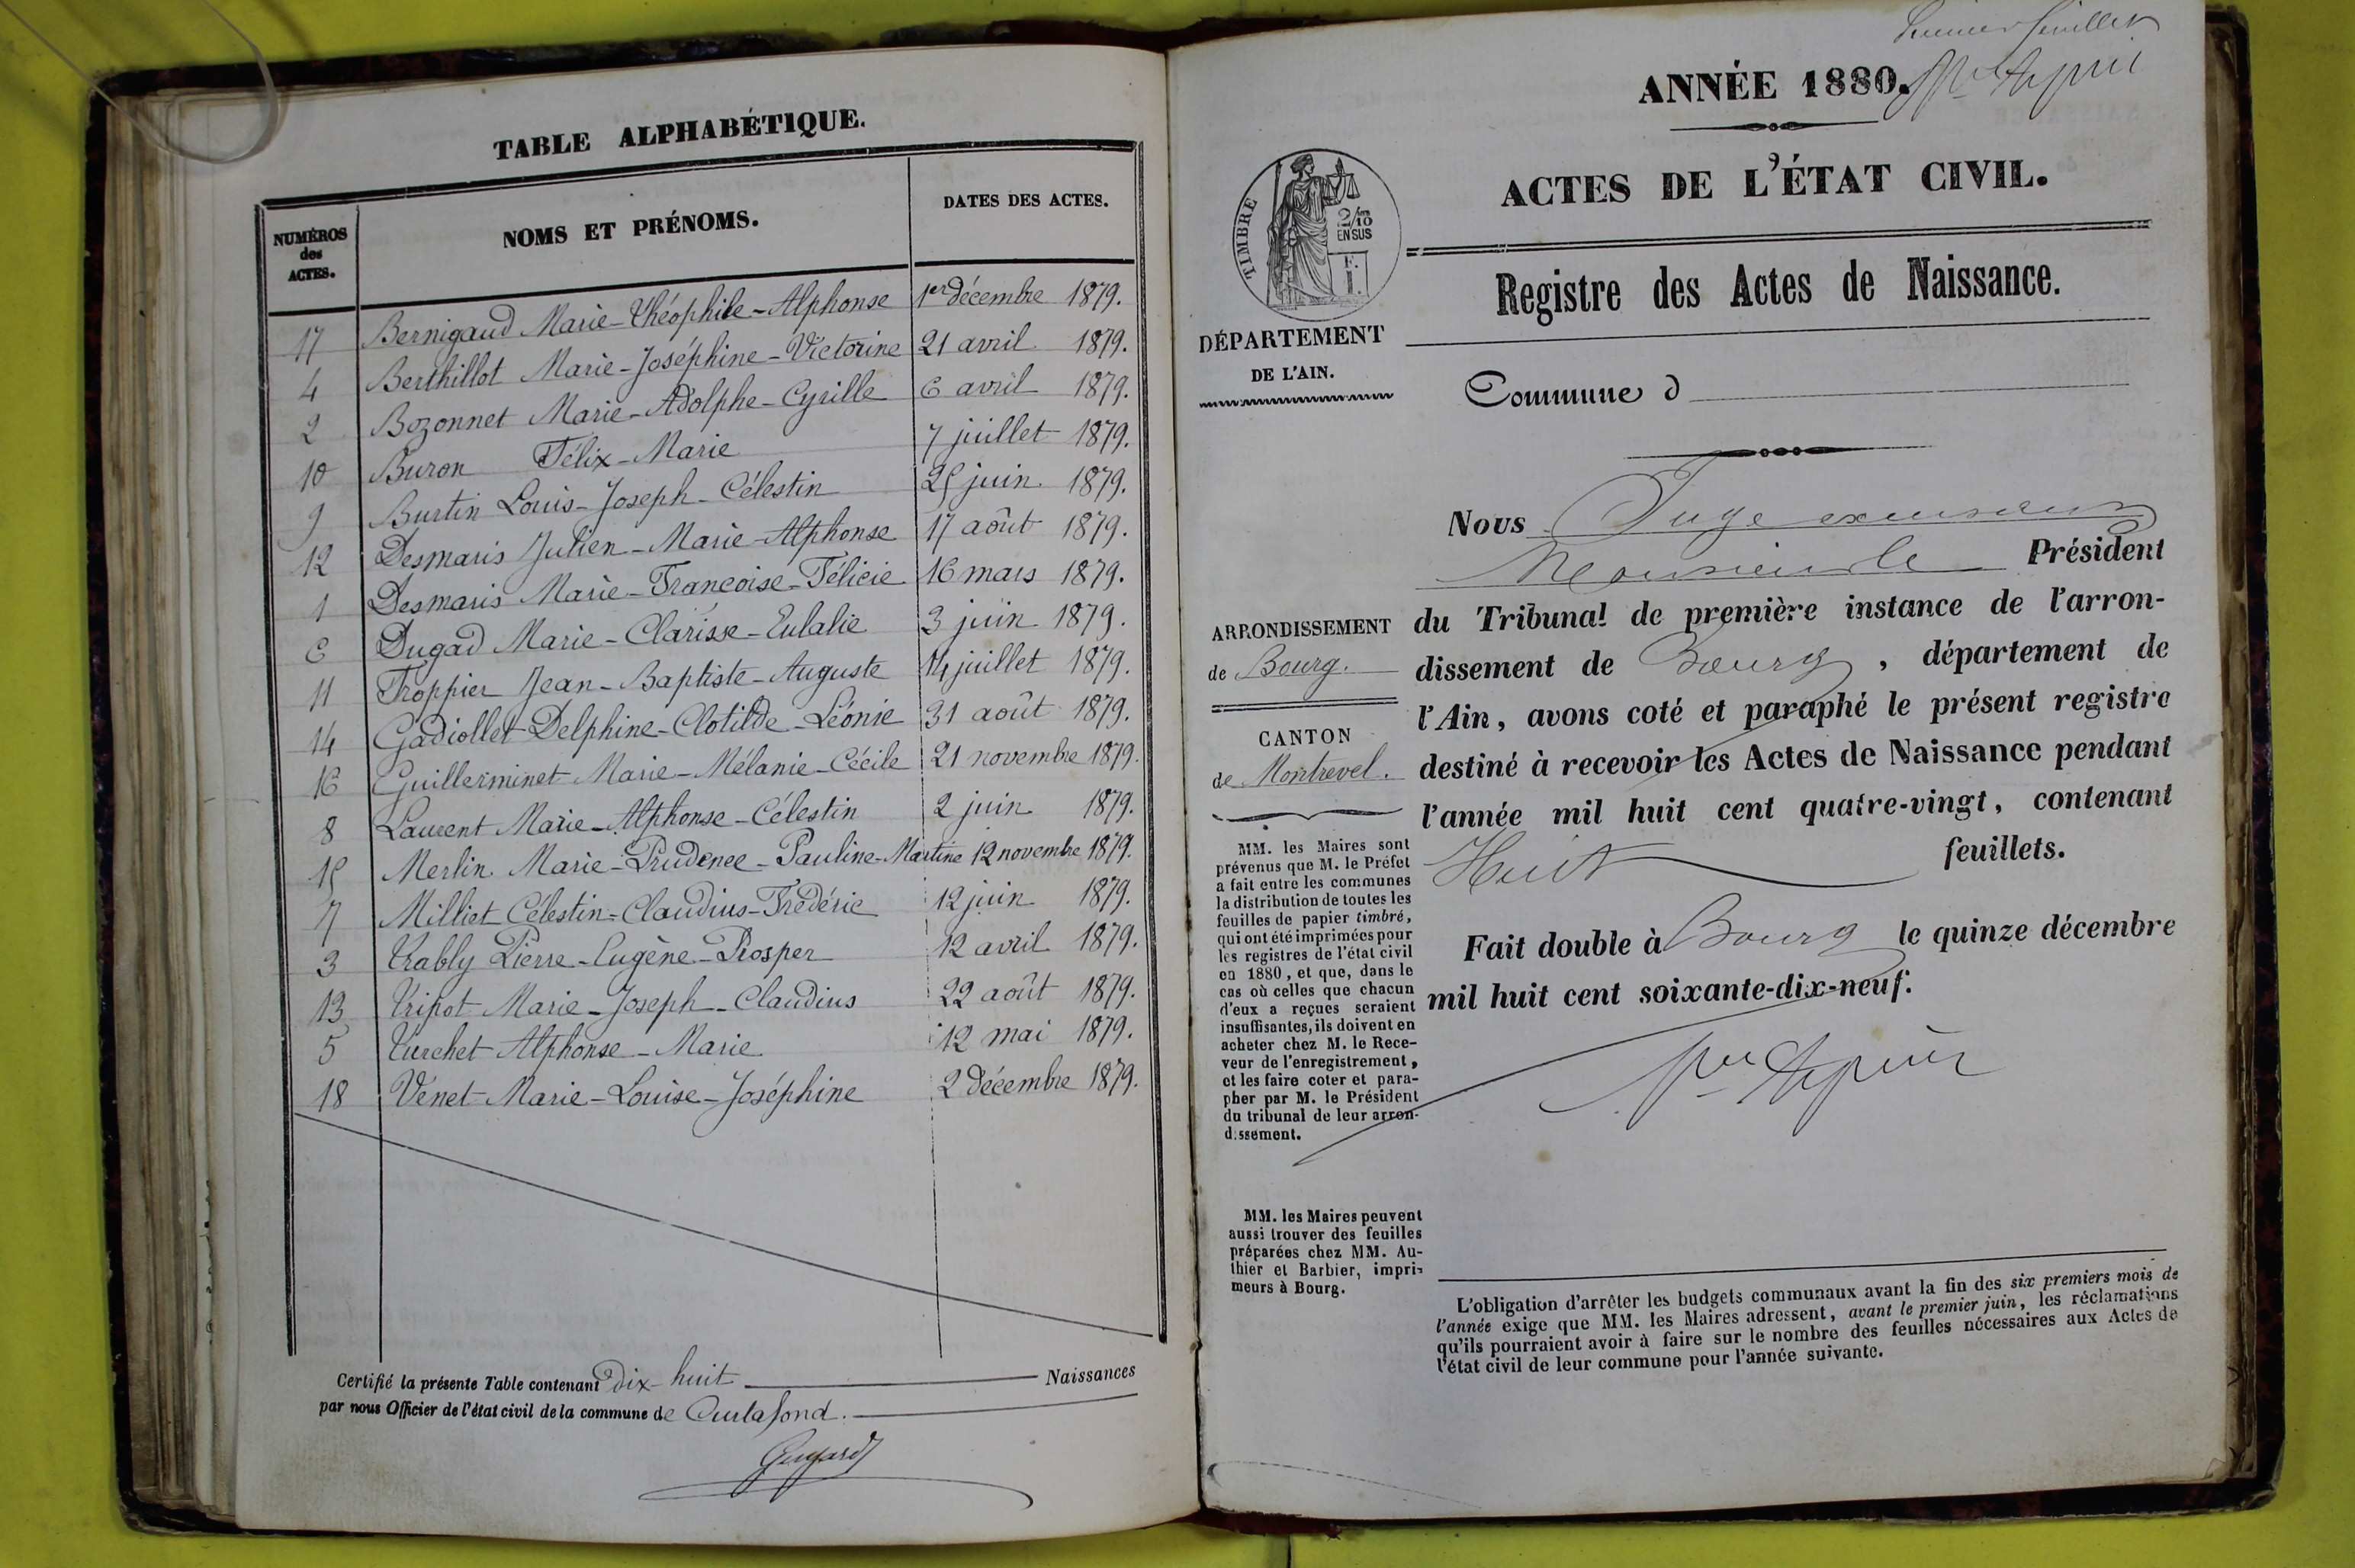 TABLE ALPHABÉTIQUE.
NUMÉROS des ACTES. NOMS ET PRÉNOMS. DATES DES ACTES.
17 Bernigaud Marie-Théophile-Alphonse 1er décembre 1879.
4 Berthillot Marie-Joséphine-Victorine 21 avril 1879.
2 Bozonnet Marie-Adolphe-Cyrille 6 avril 1879.
10 Buron Félix-Marie 7 juillet 1879.
9 Burtin Louis-Joseph-Célestin 25 juin 1879.
12 Desmaris Julien-Marie-Alphonse 17 août 1879.
1 Desmaris Marie-Françoise-Félicie 16 mars 1879.
6 Dugad Marie-Clarisse-Eulalie 3 juin 1879.
11 Froppier Jean-Baptiste-Auguste 14 juillet 1879.
14 Gadiollet Delphine-Clotilde-Léonie 31 août 1879.
16 Guillerminet Marie-Mélanie-Cécile 21 novembre 1879.
8 Laurent Marie-Alphonse-Célestin 2 juin 1879.
15 Merlin Marie-Prudence-Pauline-Martine 12 novembre 1879.
7 Milliet Célestin-Claudius-Frédéric 12 juin 1879.
3 Trably Pierre-Eugène-Prosper 12 avril 1879.
13 Tripot Marie-Joseph-Claudius 22 août 1879.
5 Turchet Alphonse-Marie 12 mai 1879.
18 Vénet Marie-Louise-Joséphine 2 décembre 1879.
Certifié la présente Table contenant dix-huit Naissances
par nous Officier de l'état civil de la commune de Curtafond.
ANNÉE 1880.
ACTES DE L'ÉTAT CIVIL.
TIMBRE
2/10 EN SUS
F. 1.
Registre des Actes de Naissance.
DÉPARTEMENT
DE L'AIN.
Commune d
Nous Juge
Monsieur le Président
du Tribunal de première instance de l'arron-
dissement de Bourg, département de
l'Ain, avons coté et paraphé le présent registre
destiné à recevoir les Actes de Naissance pendant
l'année mil huit cent quatre-vingt, contenant
Huit feuillets.
Fait double à Bourg le quinze décembre
mil huit cent soixante-dix-neuf.
ARRONDISSEMENT
de Bourg.
CANTON
de Montrevel.
MM. les Maires sont
prévenus que M. le Préfet
a fait entre les communes
la distribution de toutes les
feuilles de papier timbré,
qui ont été imprimées pour
les registres de l'état civil
en 1880, et que, dans le
cas où celles que chacun
d'eux a reçues seraient
insuffisantes, ils doivent en
acheter chez M. le Rece-
veur de l'enregistrement,
et les faire coter et para-
pher par M. le Président
du tribunal de leur arron-
dissement.
MM. les Maires peuvent
aussi trouver des feuilles
préparées chez MM. Au-
thier et Barbier, impri-
meurs à Bourg.
L'obligation d'arrêter les budgets communaux avant la fin des six premiers mois de
l'année exige que MM. les Maires adressent, avant le premier juin, les réclamations
qu'ils pourraient avoir à faire sur le nombre des feuilles nécessaires aux Actes de
l'état civil de leur commune pour l'année suivante.